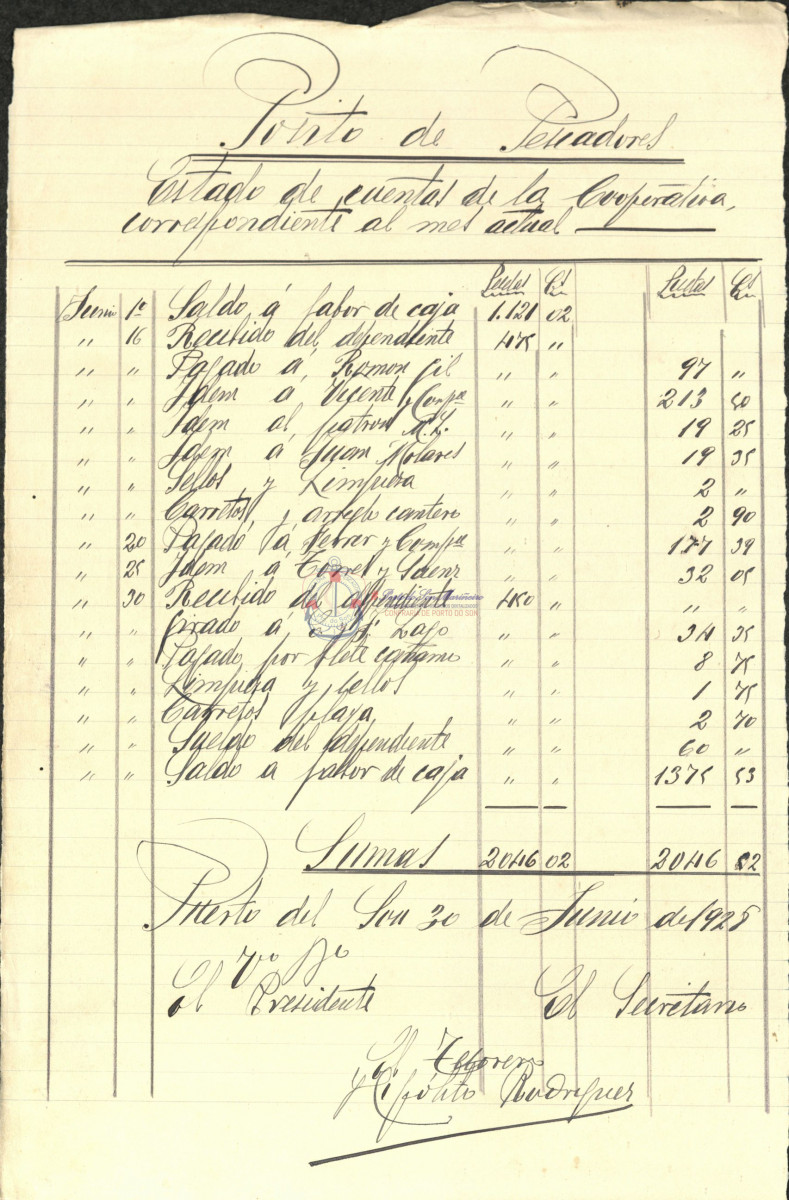 Pósito de Pescadores
Estado de cuentas de la Cooperativa,
correspondiente al mes actual
Pesetas Cs Pesetas Cs
Junio 1º Saldo á fabor de caja 1.121 02
" 16 Recibido del dependiente 475 "
" " Pagado á Ramon Gil " " 97 "
" " Idem á Vicente y Compª " " 213 50
" " Idem al patron M.L. " " 19 25
" " Idem á Juan Molares " " 19 35
" " Sellos y Limpieza 2 "
" " Carretos y arreglo cantero " " 2 90
" 20 Pagado á Ferrer y Compª " " 177 39
" 25 Idem á Torres y Saenz " " 32 05
" 30 Recibido del dependiente 450 " " "
" " Girado á Lago " " 34 35
" " Pagado por flete " " 8 75
" " Limpieza y sellos " " 1 75
" " Carretos playa " " 2 70
" " Sueldo del dependiente " " 60 "
" " Saldo á fabor de caja " " 1375 53
Sumas 2046 02 2046 52
Puerto del Son 30 de Junio de 1928
Vº Bº
El Presidente El Secretario
El Tesorero
Hipólito Rodriguez
CONFRARÍA DE PORTO DO SON